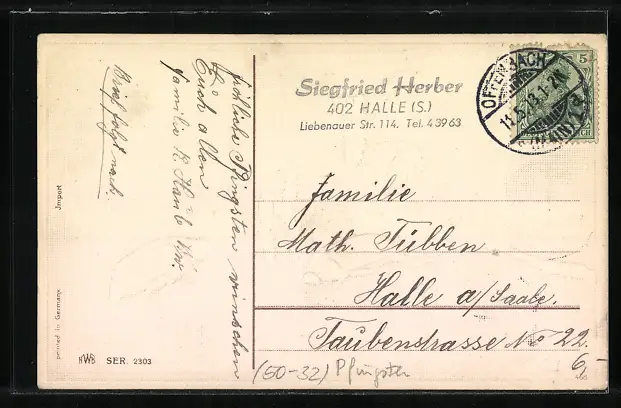 Brief folgt nach.
Fröhliche Pfingsten wünschen
Euch allen
Familie R. Haub
Import
printed in Germany
HWB SER. 2303
Siegfried Herber
402 HALLE (S.)
Liebenauer Str. 114. Tel. 4 39 63
OFFENBACH
5
Familie
Math. Tübben
Halle a/Saale.
Taubenstrasse No 22.
(50-32) Pfingsten
6,-